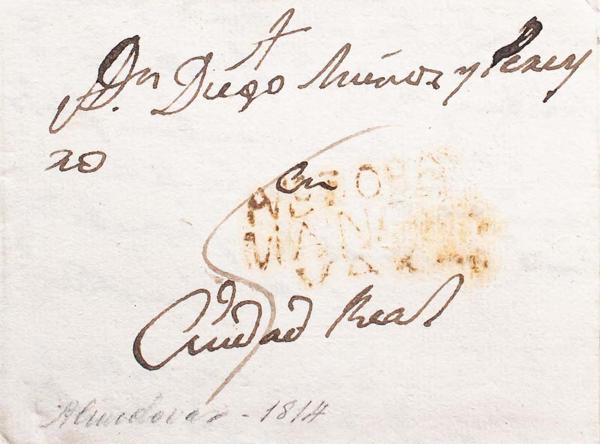 A Dn Diego Muñoz y Perey
ro
en
Ciudad Real
Almodovar - 1814